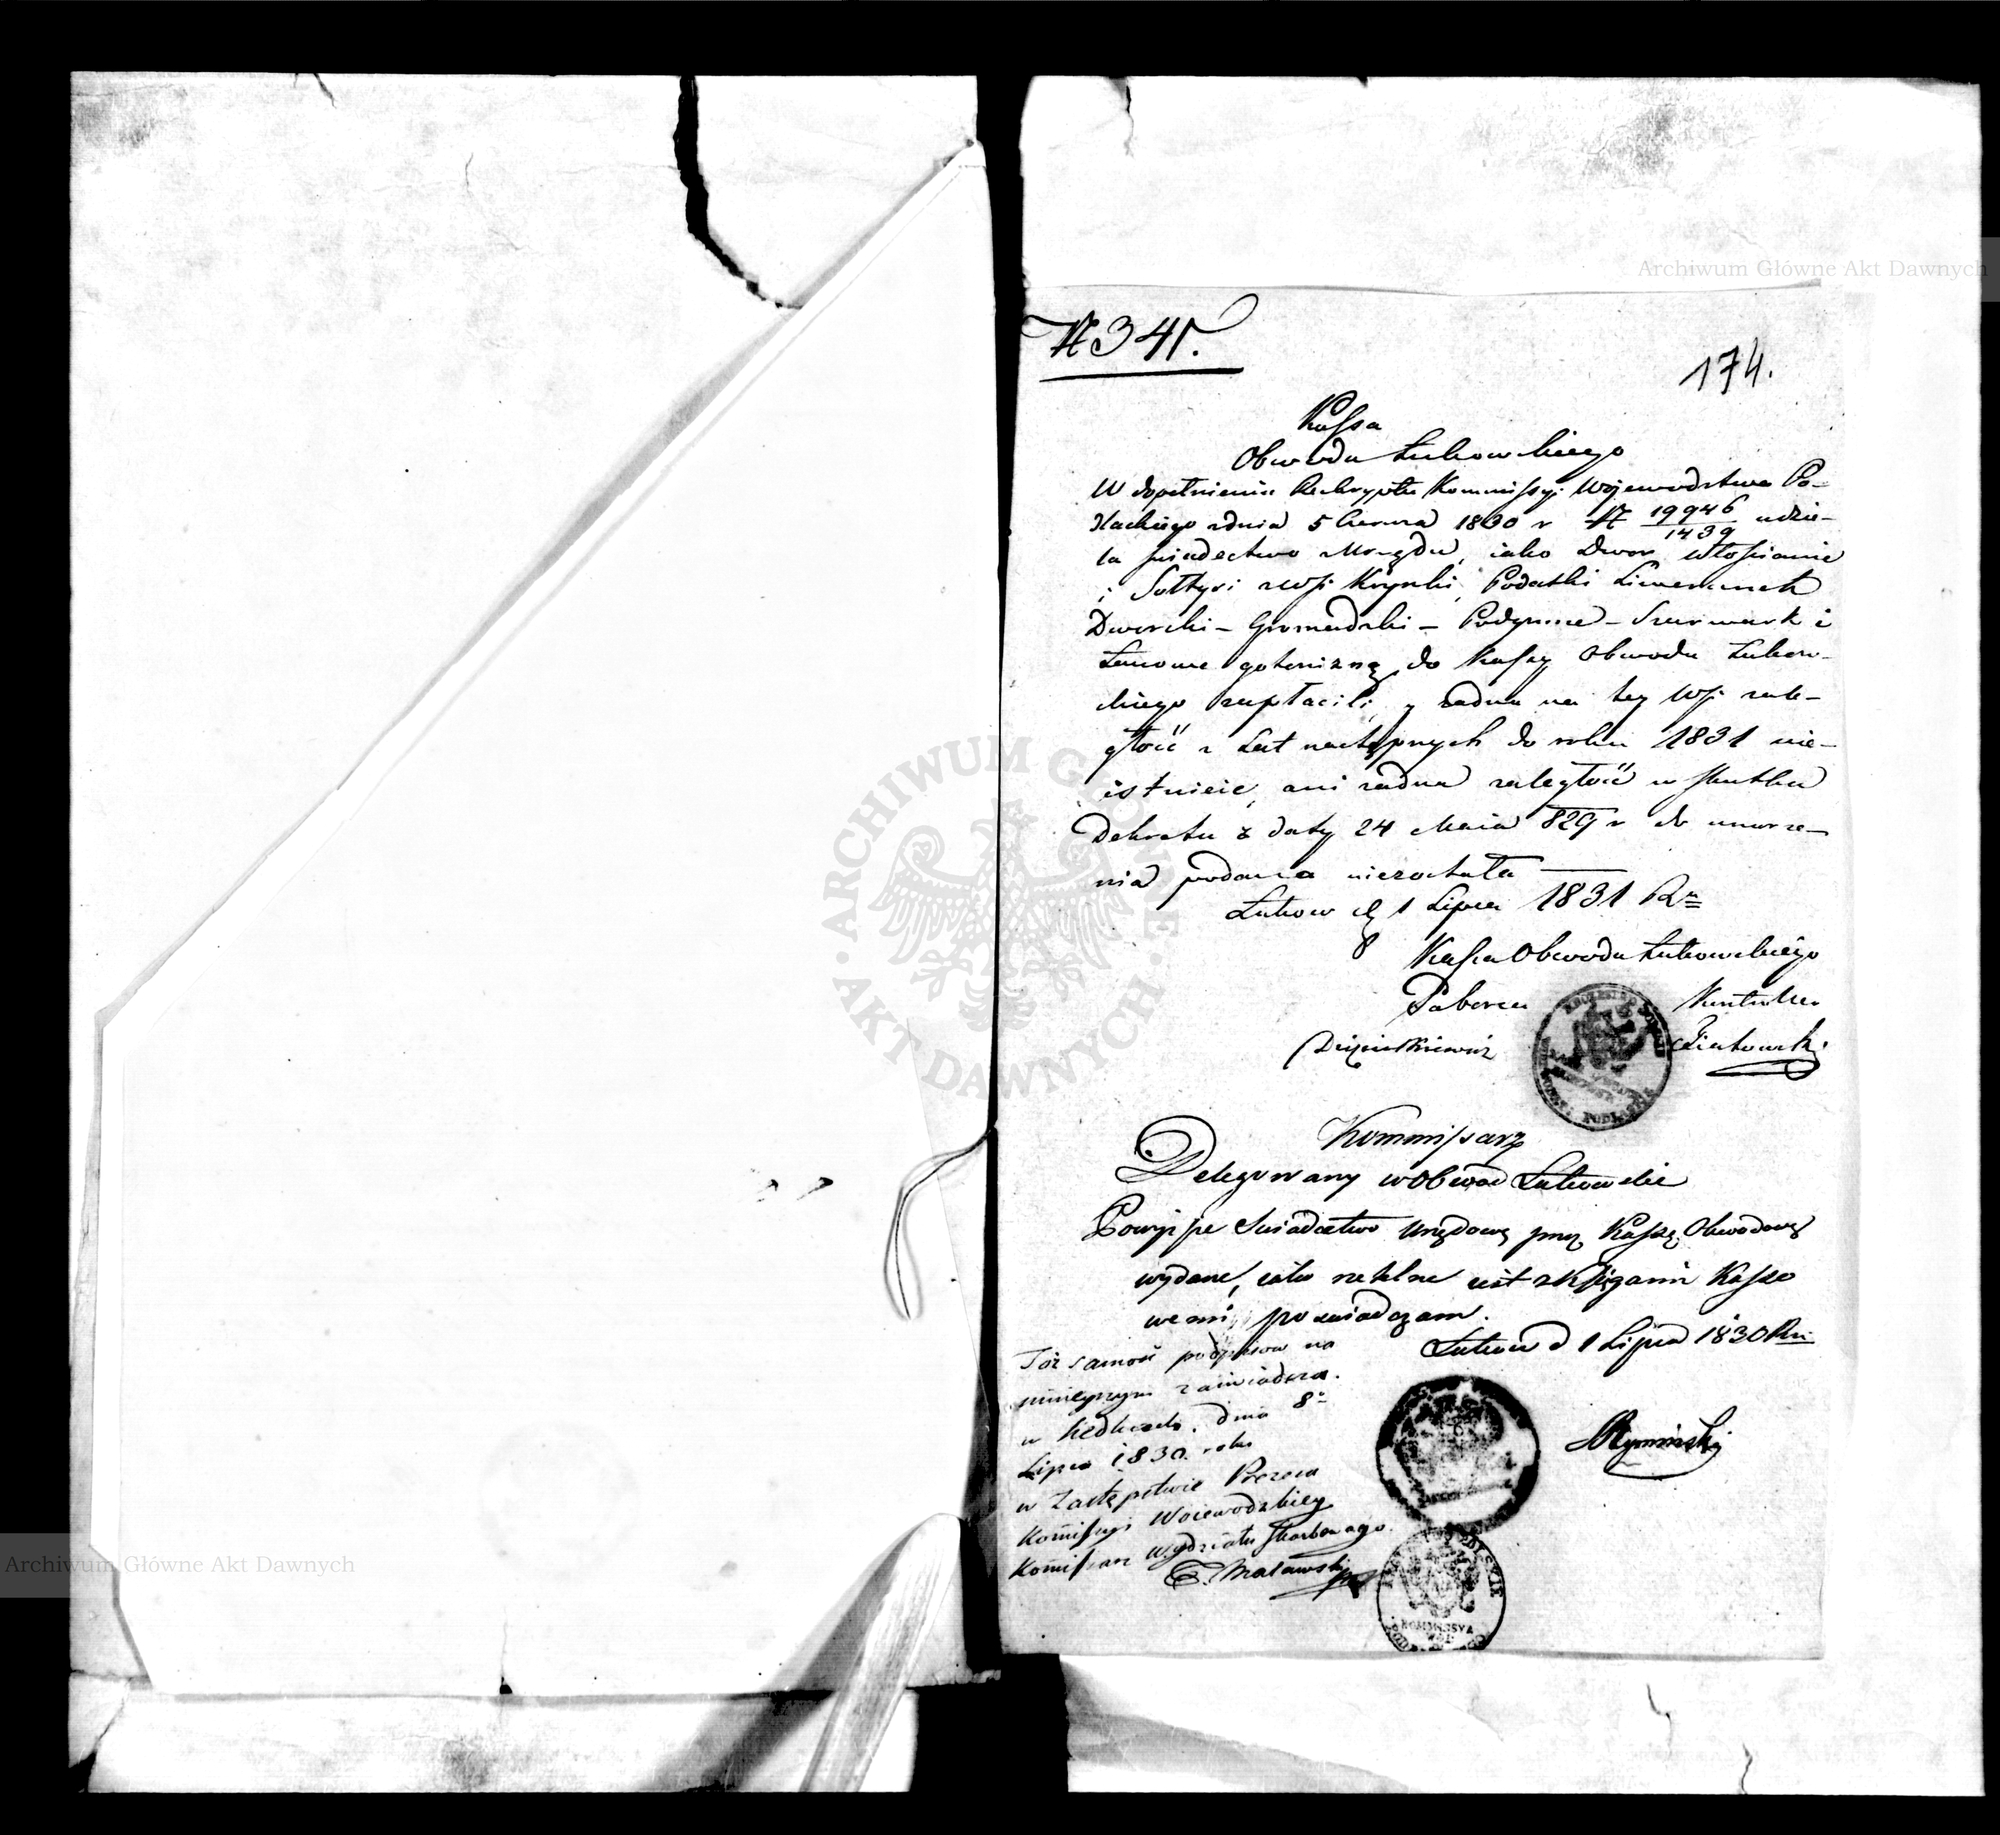 Archiwum Główne Akt Dawnych
№ 341.
174.
Kassa
Obwodu Łukowskiego
W dopełnieniu Reskryptu Kommissyi Województwa Po-
dlaskiego z dnia 5 Czerwca 1830 r № 19946/1439 udzie-
la swiadectwo z Urzędu, iako Dwor, Włoscianie
i Sołtysi z Wsi Krynki, Podatki Liwerunek
Dworski – Gromadzki – Podymne – Szarwark i
Łanowe gotowizną do Kassy Obwodu Łukow-
skiego zapłacili, y żadna na tey Wsi zale-
głość z Lat następnych do roku 1831 nie-
istnieie, ani żadna zaległość w skutku
Dekretu z daty 24 Maia 829 r do umorze-
nia podana niezostała
Łukow d 1 Lipca 1831 R
Kassa Obwodu Łukowskiego
Poborca Kontroller
Kommissarz
Delegowany w Obwod Łukowski
Powyższe Swiadectwo Urzędowe przez Kassę Obwodową
wydane, iako rzetelne iest z Xsięgami Kasso
wemi, poswiadczam.
Łukow d 1 Lipca 1830 Ru
Rymiński
Toż samość podpisow na
ninieyszym zaświadcza.
w Siedlcach. dnia 8
Lipca 1830. roku
w Zastępstwie Prezesa
Komissyi Woiewodzkiey
Komissarz Wydziału Skarbowego.
KOMMISSYA
WOJ.
ARCHIWUM GŁÓWNE
AKT DAWNYCH
Archiwum Główne Akt Dawnych